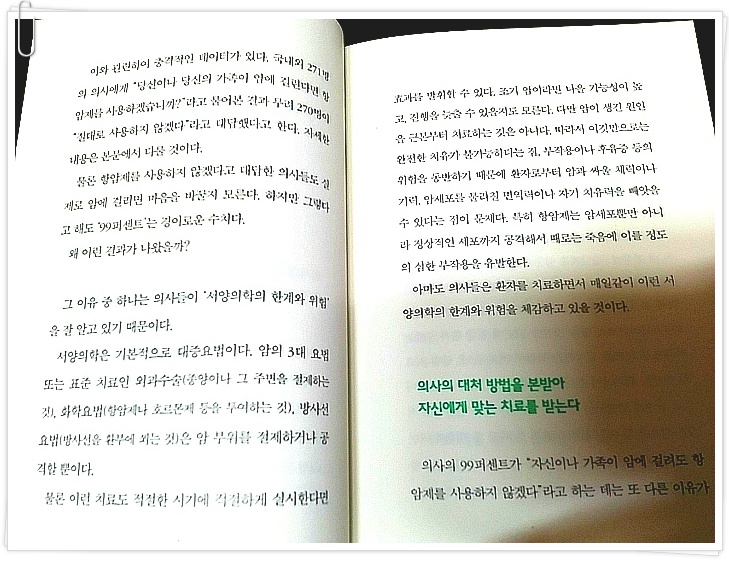 이와 관련하여 충격적인 데이터가 있다. 국내외 271명
의 의사에게 “당신이나 당신의 가족이 암에 걸린다면 항
암제를 사용하겠습니까?”라고 물어본 결과 무려 270명이
“절대로 사용하지 않겠다”라고 대답했다고 한다. 자세한
내용은 본문에서 다룰 것이다.
물론 항암제를 사용하지 않겠다고 대답한 의사들도 실
제로 암에 걸리면 마음을 바꿀지 모른다. 하지만 그렇다
고 해도 ‘99퍼센트’는 경이로운 수치다.
왜 이런 결과가 나왔을까?
그 이유 중 하나는 의사들이 ‘서양의학의 한계와 위험’
을 잘 알고 있기 때문이다.
서양의학은 기본적으로 대증요법이다. 암의 3대 요법
또는 표준 치료인 외과수술(종양이나 그 주변을 절제하는
것), 화학요법(항암제나 호르몬제 등을 투여하는 것), 방사선
요법(방사선을 환부에 쬐는 것)은 암 부위를 절제하거나 공
격할 뿐이다.
물론 이런 치료도 적절한 시기에 적절하게 실시한다면
효과를 발휘할 수 있다. 초기 암이라면 나을 가능성이 높
고, 진행을 늦출 수 있을지도 모른다. 다만 암이 생긴 원인
을 근본부터 치료하는 것은 아니다. 따라서 이것만으로는
완전한 치유가 불가능하다는 점, 부작용이나 후유증 등의
위험을 동반하기 때문에 환자로부터 암과 싸울 체력이나
기력, 암세포를 물리칠 면역력이나 자기 치유력을 빼앗을
수 있다는 점이 문제다. 특히 항암제는 암세포뿐만 아니
라 정상적인 세포까지 공격해서 때로는 죽음에 이를 정도
의 심한 부작용을 유발한다.
아마도 의사들은 환자를 치료하면서 매일같이 이런 서
양의학의 한계와 위험을 체감하고 있을 것이다.
의사의 대처 방법을 본받아
자신에게 맞는 치료를 받는다
의사의 99퍼센트가 “자신이나 가족이 암에 걸려도 항
암제를 사용하지 않겠다”라고 하는 데는 또 다른 이유가